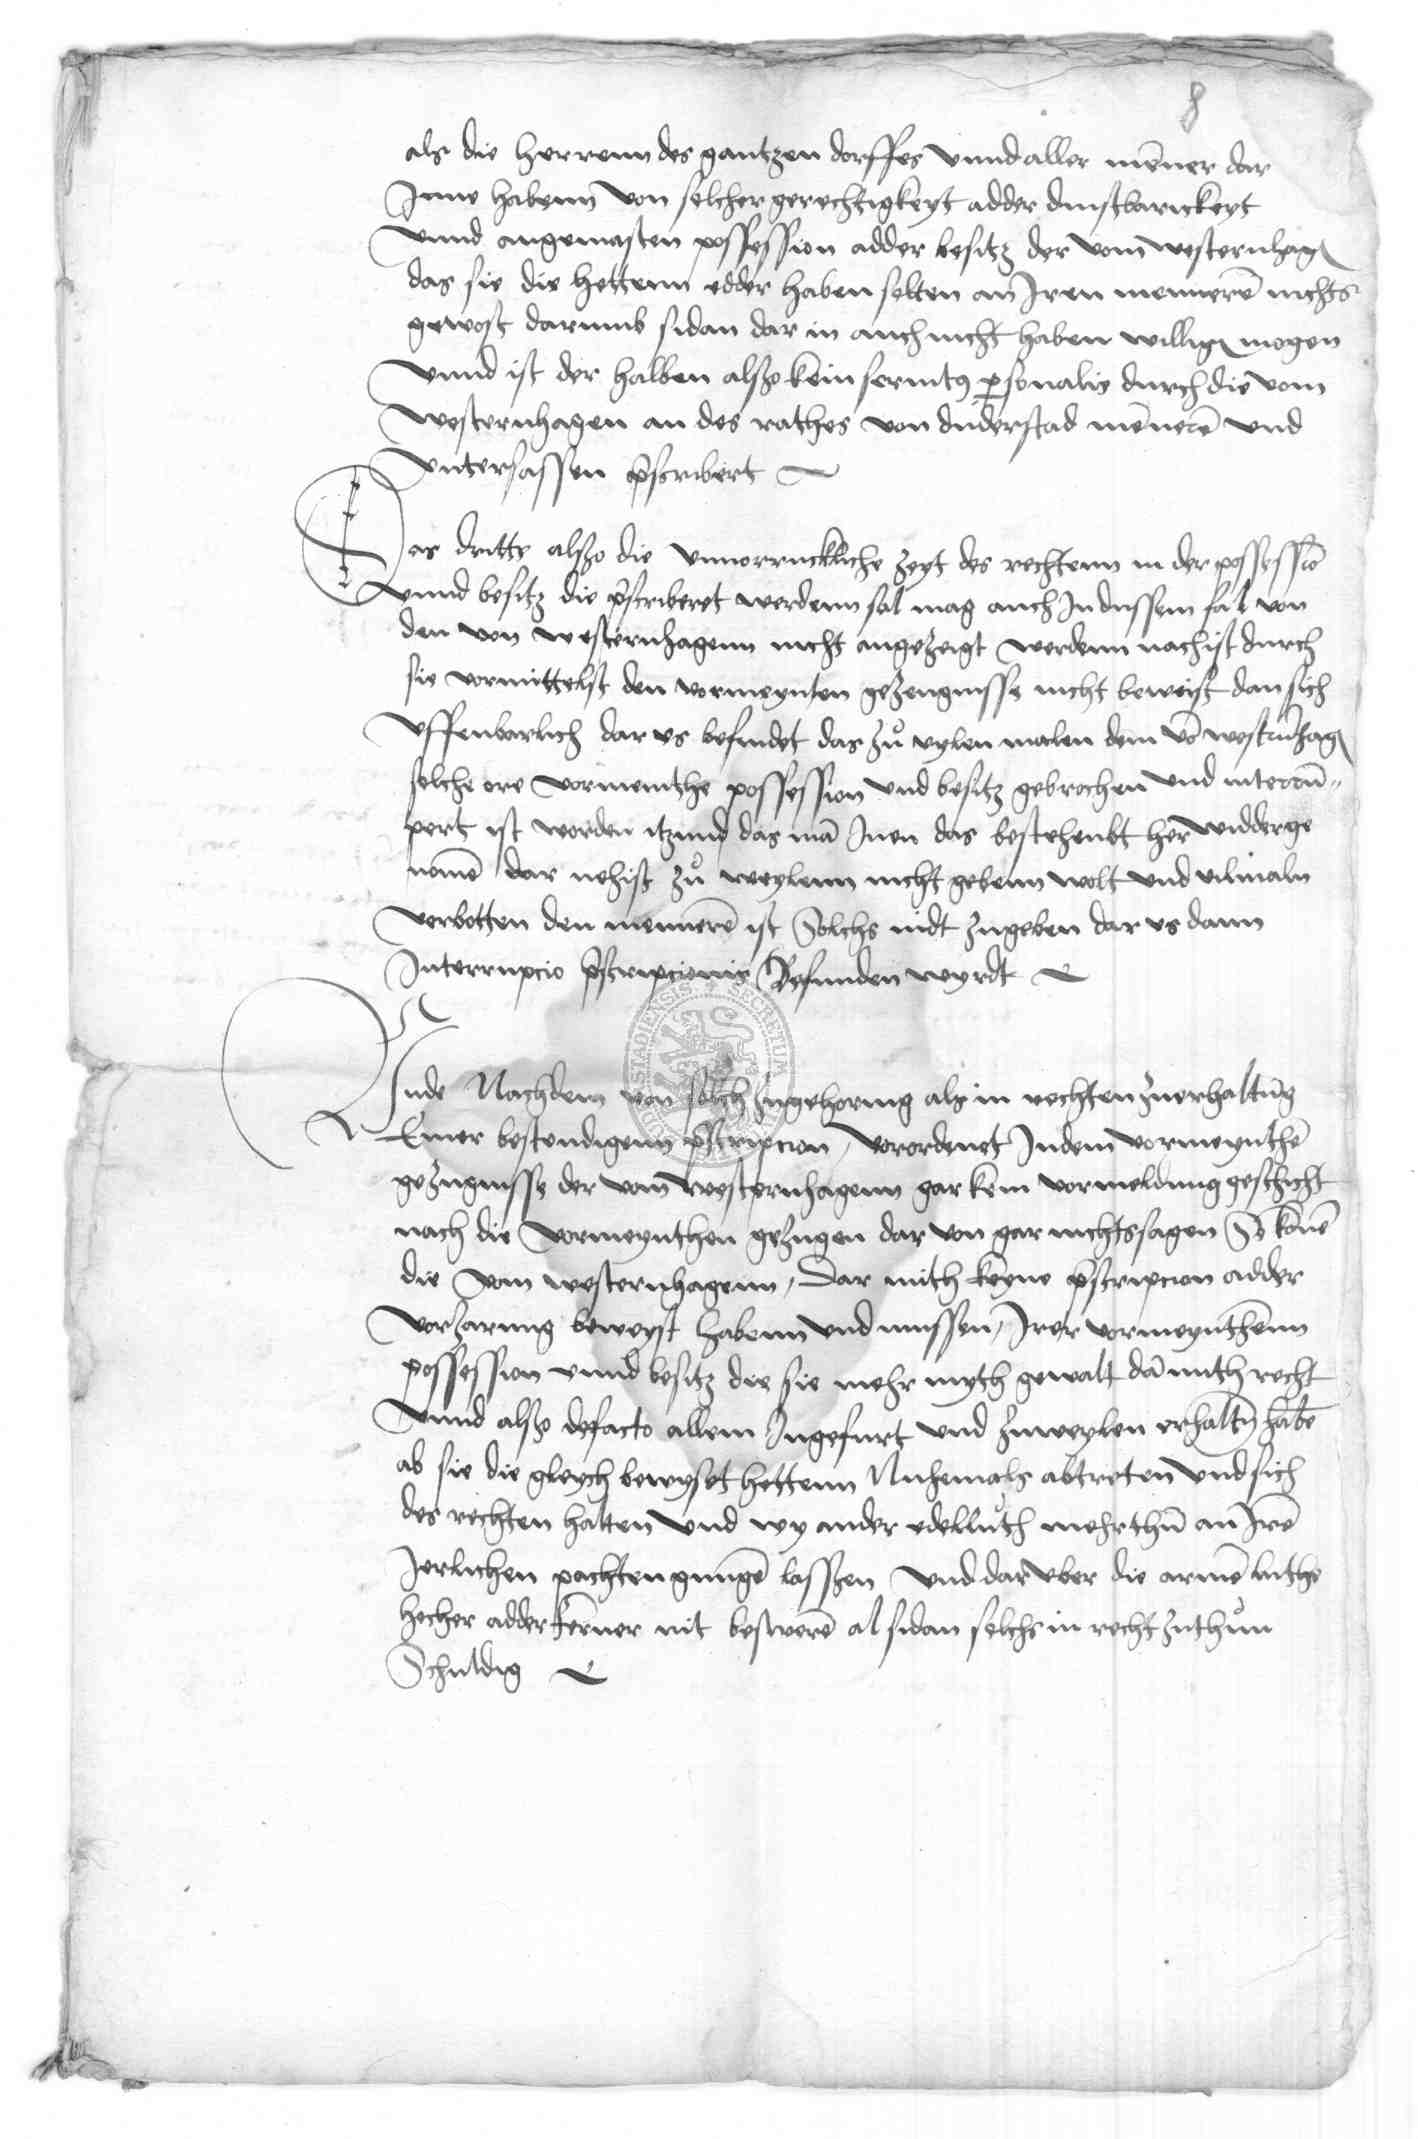 8
als die herrenn des gantzen dorffes vnnd aller mēner dar
Inne habenn von solcher gerechtigkeyt adder dinstbarickeyt
vnnd angemasten possession adder besitz der vom westernhagen
das sie die hettenn edder haben solten an Iren mennerē nichts
gewost darumb sidan dar in auch nicht haben willigen mogen
vnnd ist der halben alßo kein seruitus personalis durch die vom
westernhagen an des rathes von duderstad mēnerē vnd
vntersassen p̄scribert
Das dritte alßo die vnuorruckliche zeyt des rechtenn in der possessiō
vnnd besitz die p̄scriberet werdenn sal mag auch In dussem fal von
den von westernhagenn nicht angezeigt werdenn nach ist durch
sie vormittelst den vormeynten gezeugnisse nicht beweist dan sich
vffenbarlich dar vs befindet das zů vylen malen dem vō westrnhagen
solche ere vormeinthe possession vnd besitz gebrochen vnd interrū-
pert ist worden itzund das mā Inen das bestehenbt her widderge
nomē dar nehist zů weylenn nicht gebenn wolt vnd vilmaln
verbotten den mennerē ist Solchs nidt zugeben dar vs dann
Interrupcio p̄scripcionis Befunden wyrdt
Vnde Nachdem von solch zugehoring als in rechten zuerhaltūg
Einer bestendigenn p̄scripcion, vorordenet In dem vormeynthē
gezugnisse der vom westernhagenn gar kein vormeldung geschicht
nach die vormeynthen gezugen dar von gar nichts sagen So kōnē
die vom westernhagenn, Dar mith keyne p̄scripcion adder
vorjarung beweyst habenn vnd mussen, Irer vormeynthenn
possession vnnd besitz die sie mehr myth gewalt dā mith recht
vnnd alßo defacto allein Ingefurt vnd zuweylen erhaltn habē
ab sie die gleych bewyset hettenn Nuhemals abtreten vnd sich
des rechten halten vnd wy ander edelluth mehr thū an Irē
Jerlichen pachten gnugē lasszen vnd dar vber die armē luthe
hocher adder ferner nit besweren al sidan solchs in recht zuthůn
Schuldig